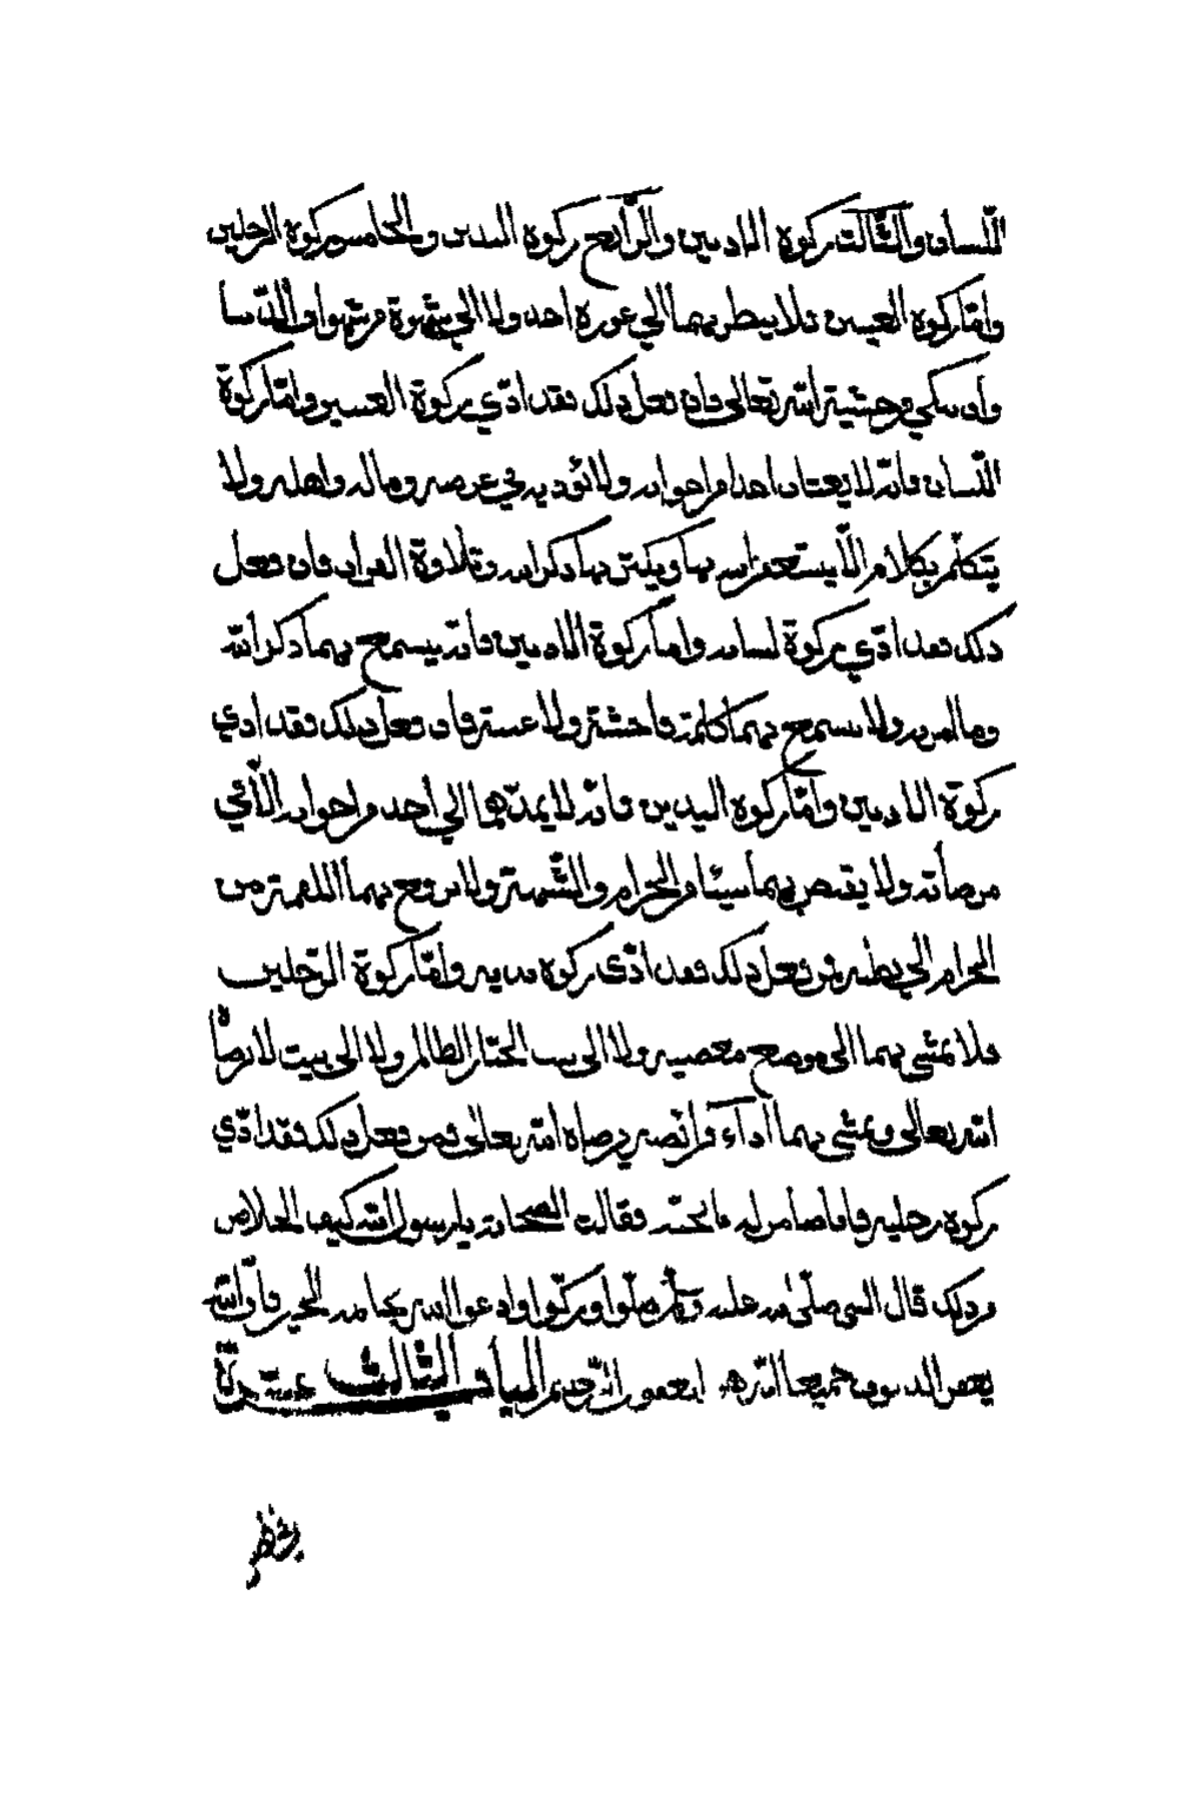 اللسان والثالث زكوة الاذنين والرابع زكوة اليدين والخامس زكوة الرجلين
وامّا زكوة العينين فلا ينظر بهما الي عورة احد ولا الي شهوة من شهوات الدنيا
وان يبكي من خشية الله تعالى فان فعل ذلك فقد ادّي زكوة العينين وامّا زكوة
اللسان فانّه لا يغتاب احدا من اخوانه ولا يؤذيه في عرضه وماله واهله ولا
يتكلّم بكلام الّا يستغفر الله بها ويكثر بها ذكر الله وتلاوة القران فان فعل
ذلك فقد ادّي زكوة لسانه واما زكوة الاذنين فانه يسمع بهما ذكر الله
ولا يسمع بهما كلمة فاحشة ولا غيبة فان فعل ذلك فقد ادي
زكوة الاذنين وامّا زكوة اليدين فانه لا يمدّهما الي احد من اخوانه الّا في
مرضاته ولا يقبض بهما شيئا من الحرام والشّبهة ولا يرفع بهما اللقمة من
الحرام الي بطنه فمن فعل ذلك فقد ادّى زكوة يديه وامّا زكوة الرّجلين
فلا يمشي بهما الى موضع معصية ولا الى الظالم ولا الى بيت لا يرضاه
الله تعالى ويمشي بهما اداء فرائضه ورضاه الله تعالى فمن فعل ذلك فقد ادّي
زكوة رجليه فقالت الصحابة يا رسول الله كيف الخلاص
من ذلك قال النبي صلّى الله عليه وسلم صلّوا وزكّوا وادعوا الله فانّ الله
يغفر الذنوب جميعا انّه هو الغفور الرّحيم الباب الثالث عشر